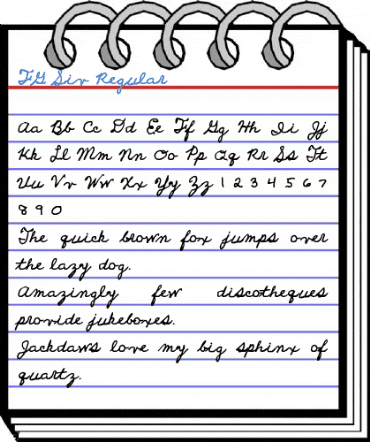 FG Siv Regular
Aa Bb Cc Dd Ee Ff Gg Hh Ii Jj
Kk Ll Mm Nn Oo Pp Qq Rr Ss Tt
Uu Vv Ww Xx Yy Zz 1 2 3 4 5 6 7
8 9 0
The quick brown fox jumps over
the lazy dog.
Amazingly few discotheques
provide jukeboxes.
Jackdaws love my big sphinx of
quartz.